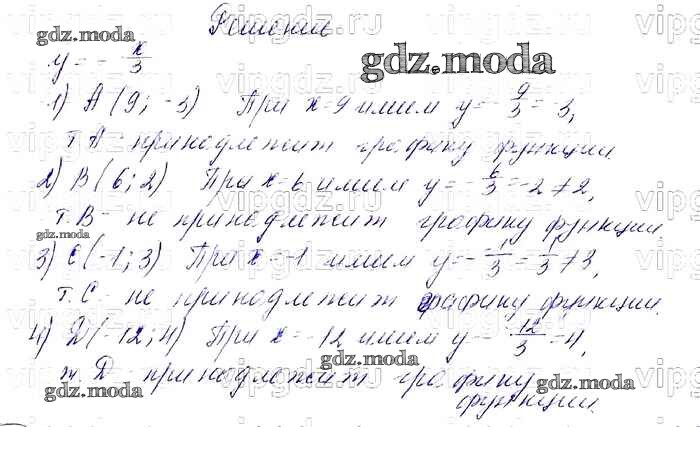 Решение
y = - x/3
1) A (9; -3) При x=9 имеем y = - 9/3 = -3,
т. A - принадлежит графику функции.
2) B (6; 2) При x=6 имеем y = - 6/3 = -2 ≠ 2,
т. B - не принадлежит графику функции.
3) C (-1; 3) При x = -1 имеем y = - -1/3 = 1/3 ≠ 3,
т. C - не принадлежит графику функции.
4) D (-12; 4) При x = -12 имеем y = - -12/3 = 4,
т. D - принадлежит графику
функции.
gdz.moda
gdz.moda
gdz.moda
gdz.moda
gdz.moda
gdz.moda
vipgdz.ru